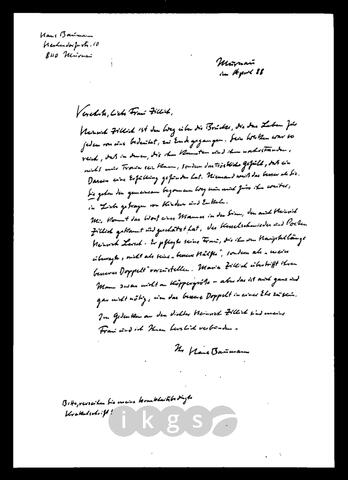 Hans Baumann
8110 Murnau
Murnau
im April 88
Verehrte, liebe Frau Zillich,
Heinrich Zillich ist den Weg über die Brücke, die das Leben für
jeden von uns bedeutet, zu Ende gegangen. Sein Leben war so
reich, daß in denen, die ihm
nicht nur Trauer sein kann, sondern das tröstliche Gefühl, daß ein
Dasein seine Erfüllung gefunden hat. Niemand weiß das besser als Sie.
Sie gehen den gemeinsam begonnenen Weg nun mit für ihn weiter,
in Liebe getragen von Kindern und Enkeln.
Mir kommt das Wort eines Mannes in den Sinn, den auch Heinrich
Zillich gekannt und geschätzt hat, des Kesselschmieds und Poeten
Heinrich Lersch. Er pflegte seine Frau, die ihn um Haupteslänge
überragte, nicht als seine "bessere Hälfte", sondern als "mein
besseres Doppelt" vorzustellen. Maria Zillich übertrifft ihren
Mann zwar nicht an Körpergröße – aber das ist auch ganz und
gar nicht nötig, um das bessere Doppelt in einer Ehe zu sein.
Im Gedenken an den Dichter Heinrich Zillich sind meine
Frau und ich Ihnen herzlich verbunden.
Ihr Hans Baumann
Bitte, verzeihen Sie meine krankheitsbedingte
Krakelschrift!
ikgs